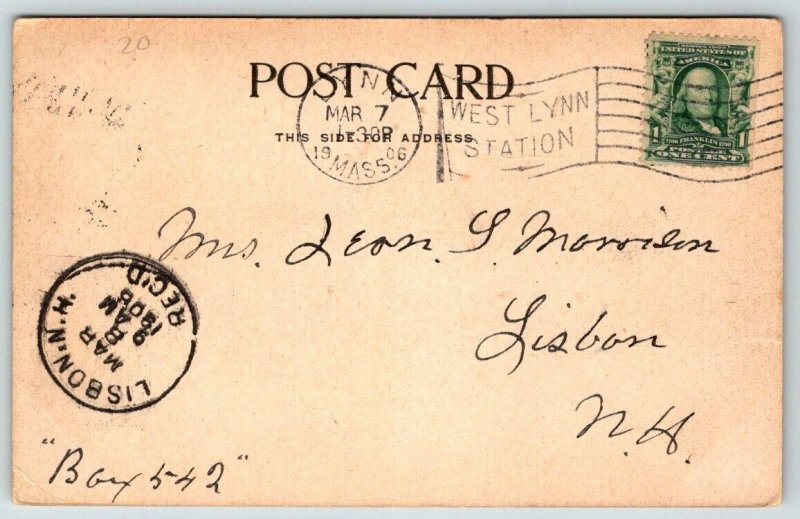 20
POST CARD
THIS SIDE FOR ADDRESS
LYNN
MAR 7
1906
MASS.
WEST LYNN
STATION
SERIES 1902
UNITED STATES OF
AMERICA
1
1706 FRANKLIN 1790
POSTAGE
ONE CENT
Mrs. Leon. S. Morrison
Lisbon
N.H.
LISBON, N.H.
MAR
8
9 AM
1906
REC'D
"Box 542"